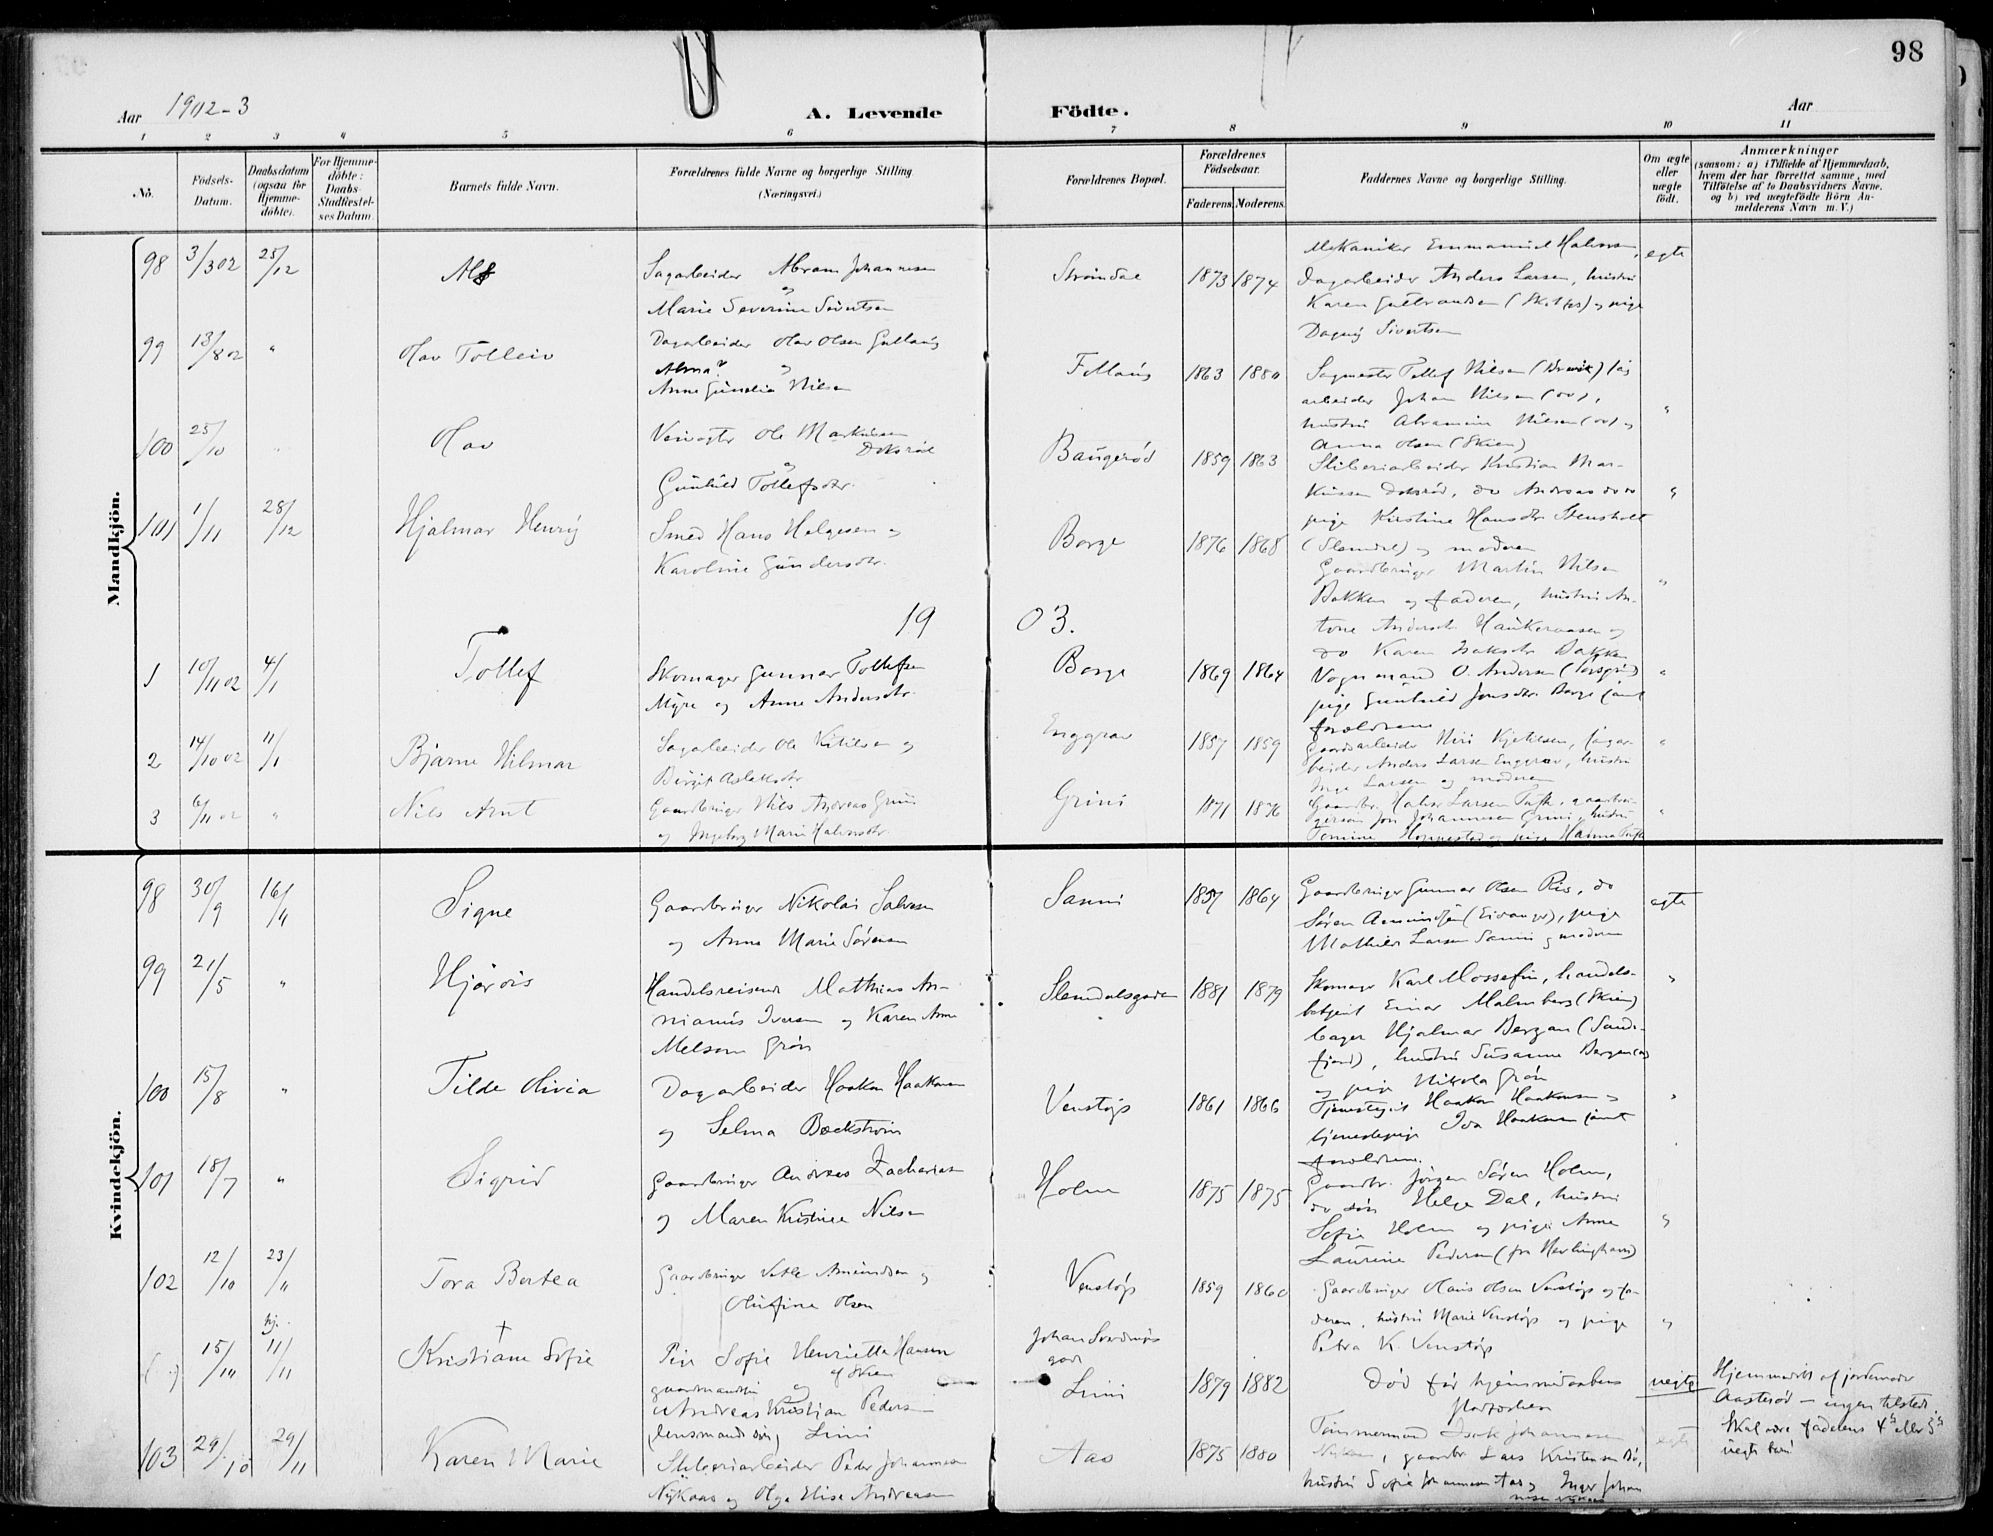 98
Aar 1902-3
A. Levende Födte.
Aar
1 2 3 4 5 6 7 8 9 10 11
No.
Födsels-Datum.
Daabsdatum (ogsaa for Hjemme-döbte).
For Hjemme-döbte: Daabs-Stadfæstel-ses Datum
Barnets fulde Navn.
Forældrenes fulde Navne og borgerlige Stilling (Næringsvei.)
Forældrenes Bopæl.
Forældrenes Födselsaar.
Faderens. Moderens.
Faddernes Navne og borgerlige Stilling.
Om ægte eller uægte födt.
Anmærkninger
(saasom: a) i Tilfælde af Hjemmedaab,
hvem der har forrettet samme, med
Tilföielse af to Daabsvidners Navne,
og b) ved uægtefödte Börn An-
melderens Navn m. V.)
Mandkjön.
98 3/3 02 25/12 Alf
Sagarbeider Abram Johannesen
og
Marie Severine Sivertsen
Strömdal 1873 1874
Mekaniker Emmanuel Halvorsen,
Dagarbeider Anders Larsen, hustru
Karen Gulbrandsen og pige
Dagny Sivertsen
egte
99 13/8 02 "
Olav Tolleiv
Dagarbeider Olav Olsen
Alma? og
Anne Gunelia Nilsen
1863 1880
Sagmester Tollef Nilsen
arbeider Johan Nilsen
hustru Abramine Nilsen
Anna Olsen (Skien)
"
100 25/10 "
Olav
Ole Markussen
Doksrød
og
Gunhild Tollefsdtr.
Baugerød 1859 1863
Sliberiarbeider Kristian Mar-
kussen Doksrød, do Andreas do
pige Kirstine Hansdtr Stensholt
(Slemdal) og moderen
"
101 1/11 28/12
Hjalmar Henry
Smed Hans Helgesen og
Karoline Gundersdtr.
Borge 1876 1868
Gaardbruger Martin Nilsen
Bakken og faderen, hustru An-
tone Andersdtr. Haukeraasen og
do Karen Isaksdtr Bakken
"
19 03.
1 10/11 02 4/1
Tollef
Skomager Gunnar Tollefsen
Myre og Anne Andersdtr.
Borge 1869 1864
Vognmand O. Andersen (Porsgrd)
pige Gunhild Jensdtr. Borge samt
forældrene
"
2 14/10 02 11/1
Bjarne Hilmar
Sagarbeider Ole Kittilsen og
Birgit Aslaksdtr
Enggrav 1857 1859
Gaardsarbeider Kjetilsen, sagar-
beider Anders Larsen Enggrav, hustru
Inge Larsen og moderen
"
3 6/11 02 "
Nils Arnt
Gaardbruger Nils Andreas Grini
og Ingeborg Marie Halvorsdtr.
Grini 1871 1876
Gaardbr. Halvor Larsen Tufte, gaardbru-
gersøn Jon Johannesen Grini, hustru
og pige Hanna Tufte
"
Kvindekjön.
98 30/9 16/11
Signe
Gaardbruger Nikolai Salvesen
og Anne Marie Sørensen
Sanni 1857 1864
Gaardbruger Gunnar Olsen Riis, do
Søren Aamundsen (Eidanger), pige
Mathilde Larsen Sanni og moderen
egte
99 21/5 "
Hjørdis
Handelsreisende Mathias An-
Iversen og Karen Anne
Melsom Grøn
Slemdalsgaden 1881 1879
Skomager Karl Mossefin, handels-
betjent Einar Malmberg (Skien)
bager Hjalmar Bergan (Sande-
fjord), hustru Susanne Bergan
og pige Nikola Grøn
"
100 15/8 "
Tilde Olivia
Dagarbeider Haakon Haakonsen
og Selma Bäckström
Venstøp 1861 1866
Tjenestegut Haakon Haakonsen og
tjenestepige Ida Haakonsen samt
forældrene.
"
101 18/7 "
Sigrid
Gaardbruger Andreas Zachariasen
og Maren Kristine Nilsen
Holm 1875 1875
Gaardbr. Jørgen Søren Holm,
do søn Helge Dal, hustru
Sofie Holm og pige Anne
Laurine Pedersen
"
102 12/10 23/11
Tora Bertea
Gaardbruger Vetle Amundsen og
Olufine Olsen
Venstøp 1859 1860
Gaardbruger Hans Olsen Venstøp og fa-
deren, hustru Marie Venstøp og pige
Petra K. Venstøp
"
hj.
15/10 11/11
+
Kristiane Sofie
Pige Sofie Henriette Hansen
af Skien
gaardmandssøn og
Andreas Kristian Pedersen
lensmands søn, Limi
Johan
gaard
Limi 1879 1882
Død før hjemmedaabens
stadfæstelse
uegte
Hjemmedøbt af jordemoder
Aasterød - ingen tilstede.
Skal være faderens 4de eller 5te
uegte barn
103 29/10 29/11
Karen Marie
Sliberiarbeider Peder Johannesen
Nykaas og Olga Elise Andreasen
Aas 1875 1880
Tømmermand Isak Johannesen
gaardbr Lars Kristensen Bø,
hustru Sofie Johannesen Aas og Inger Johan
egte